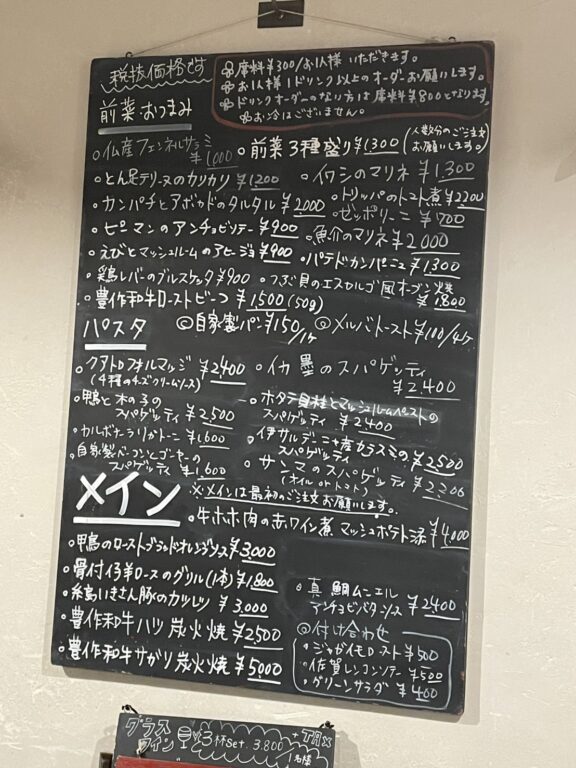 税抜価格です
♧席料¥300/お1人様 いただきます。
♧お1人様1ドリンク以上のオーダーお願いします。
♧ドリンクオーダーのない方は席料¥800となります。
♧お冷はございません。
前菜・おつまみ
◦仏産フェンネルサラミ ¥1,000
◦前菜3種盛り¥1300 (人数分のご注文お願いします。)
◦とん足テリーヌのカリカリ ¥1,200
◦イワシのマリネ ¥1,300
◦カンパチとアボカドのタルタル ¥2,000
◦トリッパのトマト煮¥2200
◦ゼッポリーニ ¥700
◦ピーマンのアンチョビソテー¥900
◦魚介のマリネ¥2000
◦えびとマッシュルームのアヒージョ¥900
◦パテドカンパーニュ¥1300
◦鶏レバーのブルスケッタ¥900
◦つぶ貝のエスカルゴ風オーブン焼 ¥1800
◦豊作和牛ローストビーフ ¥1500(50g)
パスタ
◎自家製パン¥150/1ケ
◎メルバトースト¥100/4ケ
◦クアトロフォルマッジ ¥2400
(4種のチーズクリームソース)
◦イカ墨のスパゲッティ
¥2,400
◦鴨と木の子の
スパゲッティ ¥2,500
◦ホタテ貝柱とマッシュルームペーストの
スパゲッティ ¥2400
◦カルボナーラリガトーニ ¥1,600
◦伊サルデーニャ産カラスミの
スパゲッティ ¥2500
◦自家製ベーコンとゴーヤーの
スパゲッティ ¥1,600
◦サンマのスパゲッティ ¥2200
(オイル or トマト)
メイン
※メインは最初のご注文お願いします。
◦牛ホホ肉の赤ワイン煮 マッシュポテト添 ¥4,000
◦鴨のローストブラッドオレンジソース¥3,000
◦骨付仔羊ロースのグリル(1本)¥1,800
◦糸島いきさん豚のカツレツ ¥3,000
◦豊作和牛ハツ炭火焼 ¥2,500
◦豊作和牛サガリ炭火焼 ¥5,000
◦真鯛ムニエル
アンチョビバターソース ¥2400
◎付け合わせ
◦ジャガイモロースト ¥500
◦佐賀レンコンソテー ¥500
◦グリーンサラダ ¥400
グラスワイン
3杯Set. 3,800 +TAX
1名様